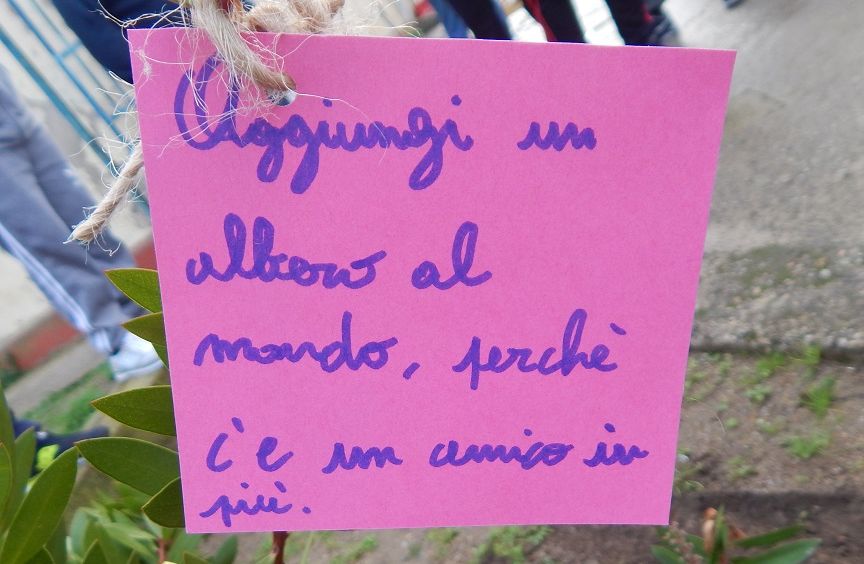 Aggiungi un
albero al
mondo, perchè
c'e un amico in
più.